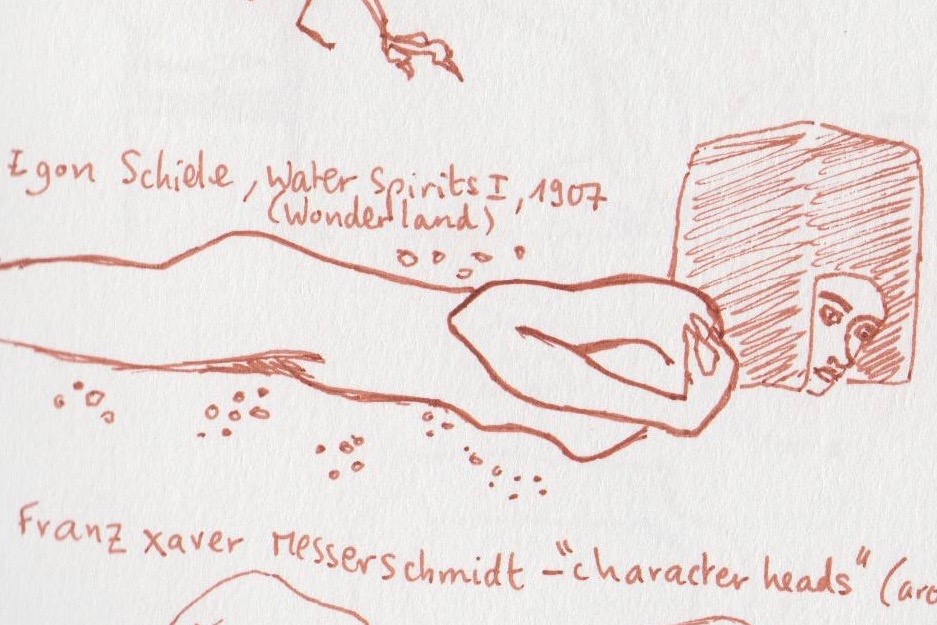 Egon Schiele, Water Spirits I, 1907
(Wonderland)
Franz Xaver Messerschmidt - "character heads" (aro